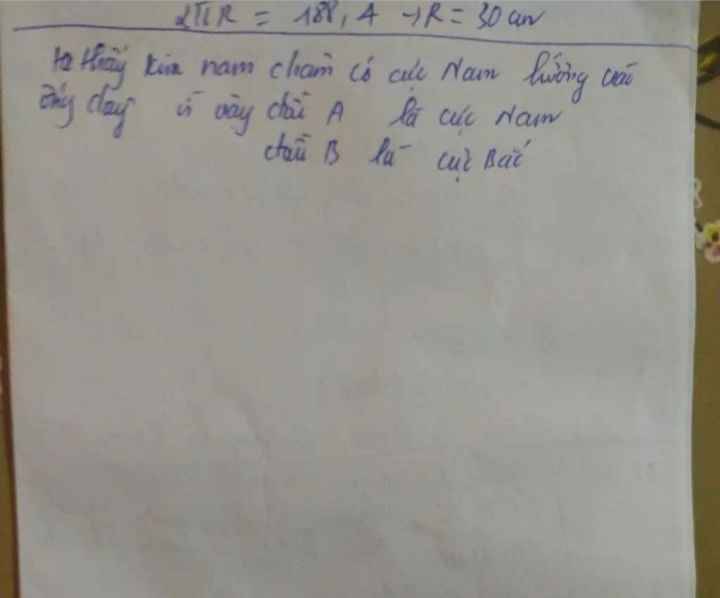 2πR = 188,4 → R = 30 cm
ta thấy kim nam châm có cực Nam hướng vào
ống dây vì vậy đầu A là cực Nam
đầu B là cực Bắc